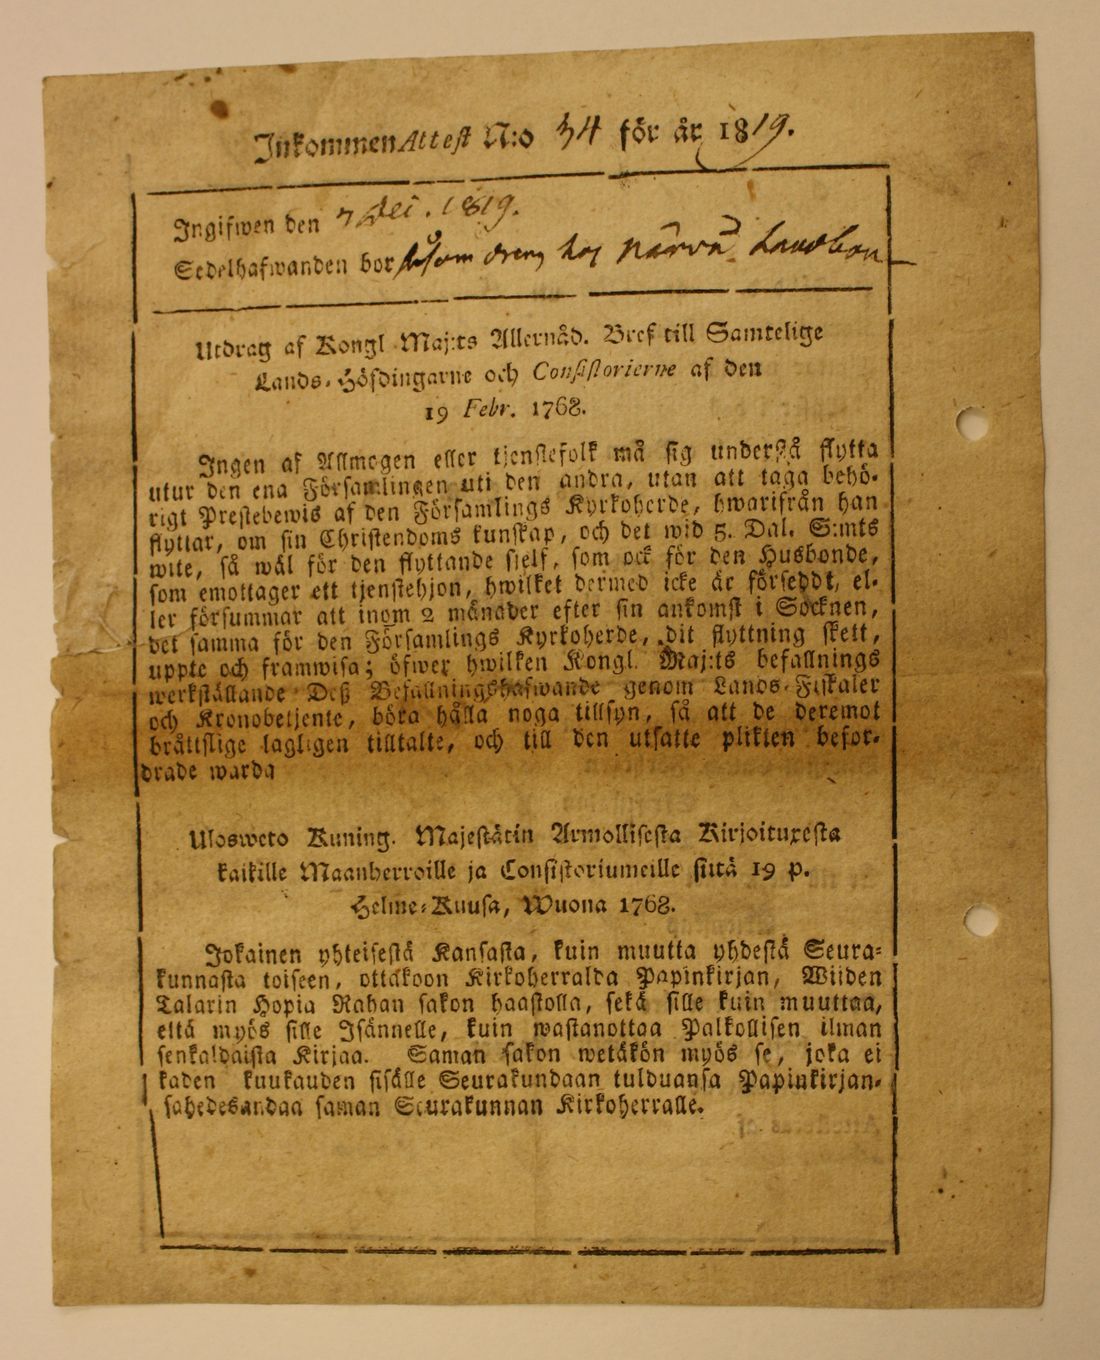 Inkommen Attest N:o 34 för år 1819.
Ingifwen den 7 Dec. 1819.
Sedelhafwanden bor såsom dreng hos Landbon
Utdrag af Kongl Maj:ts Allernåd. Bref till Samtelige
Lands-Höfdingarne och Consistorierne af den
19 Febr. 1768.
Ingen af Allmogen eller tjenstefolk må sig understå flytta
utur den ena Församlingen uti den andra, utan att taga behö-
rigt Prestebewis af den Församlings Kyrkoherde, hwarifrån han
flyttar, om sin Christendoms kunskap, och det wid 5. Dal. S:mts
wite, så wäl för den flyttande sjelf, som ock för den Husbonde,
som emottager ett tjenstehjon, hwilket dermed icke är försedt, el-
ler försummar att inom 2 månader efter sin ankomst i Socknen,
det samma för den Församlings Kyrkoherde, dit flyttning skett,
uppte och framwisa; öfwer hwilken Kongl. Maj:ts befallnings
werkställande Deß Befallningshafwande genom Lands-Fiskaler
och Kronobetjente, böra hålla noga tillsyn, så att de deremot
bråttslige lagligen tilltalte, och till den utsatte plikten befor-
drade warda
Ulosweto Kuning. Majestätin Armollisesta Kirjoituxesta
kaikille Maanherroille ja Consistoriumeille siitä 19 p.
Helme-Kuusa, Wuona 1768.
Jokainen yhteisestä Kansasta, kuin muutta yhdestä Seura-
kunnasta toiseen, ottakoon Kirkoherralda Papinkirjan, Wiiden
Talarin Hopia Rahan sakon haastolla, sekä sille kuin muuttaa,
että myös sille Isännelle, kuin wastanottaa Palkollisen ilman
senkaldaista Kirjaa. Saman sakon wetäkön myös se, joka ei
kaden kuukauden sisälle Seurakundaan tulduansa Papinkirjan-
sahedesandaa saman Seurakunnan Kirkoherralle.